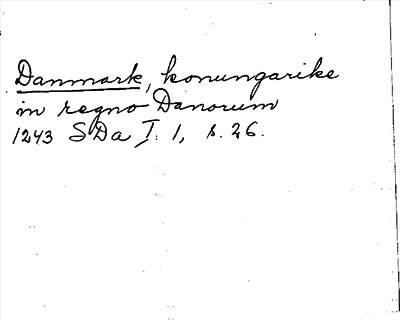 Danmark, konungarike
in regno Danorum
1243 SDa I: 1, s. 26.